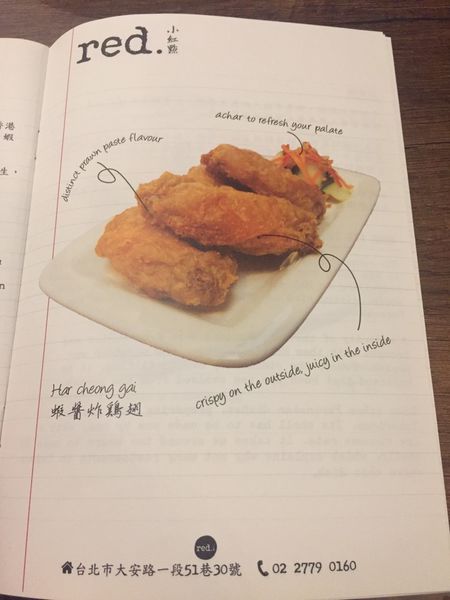 red.
小紅點
achar to refresh your palate
distinct prawn paste flavour
crispy on the outside, juicy in the inside
Har cheong gai
蝦醬炸鷄翅
red.
台北市大安路一段51巷30號
02 2779 0160
港
蝦
生，
n